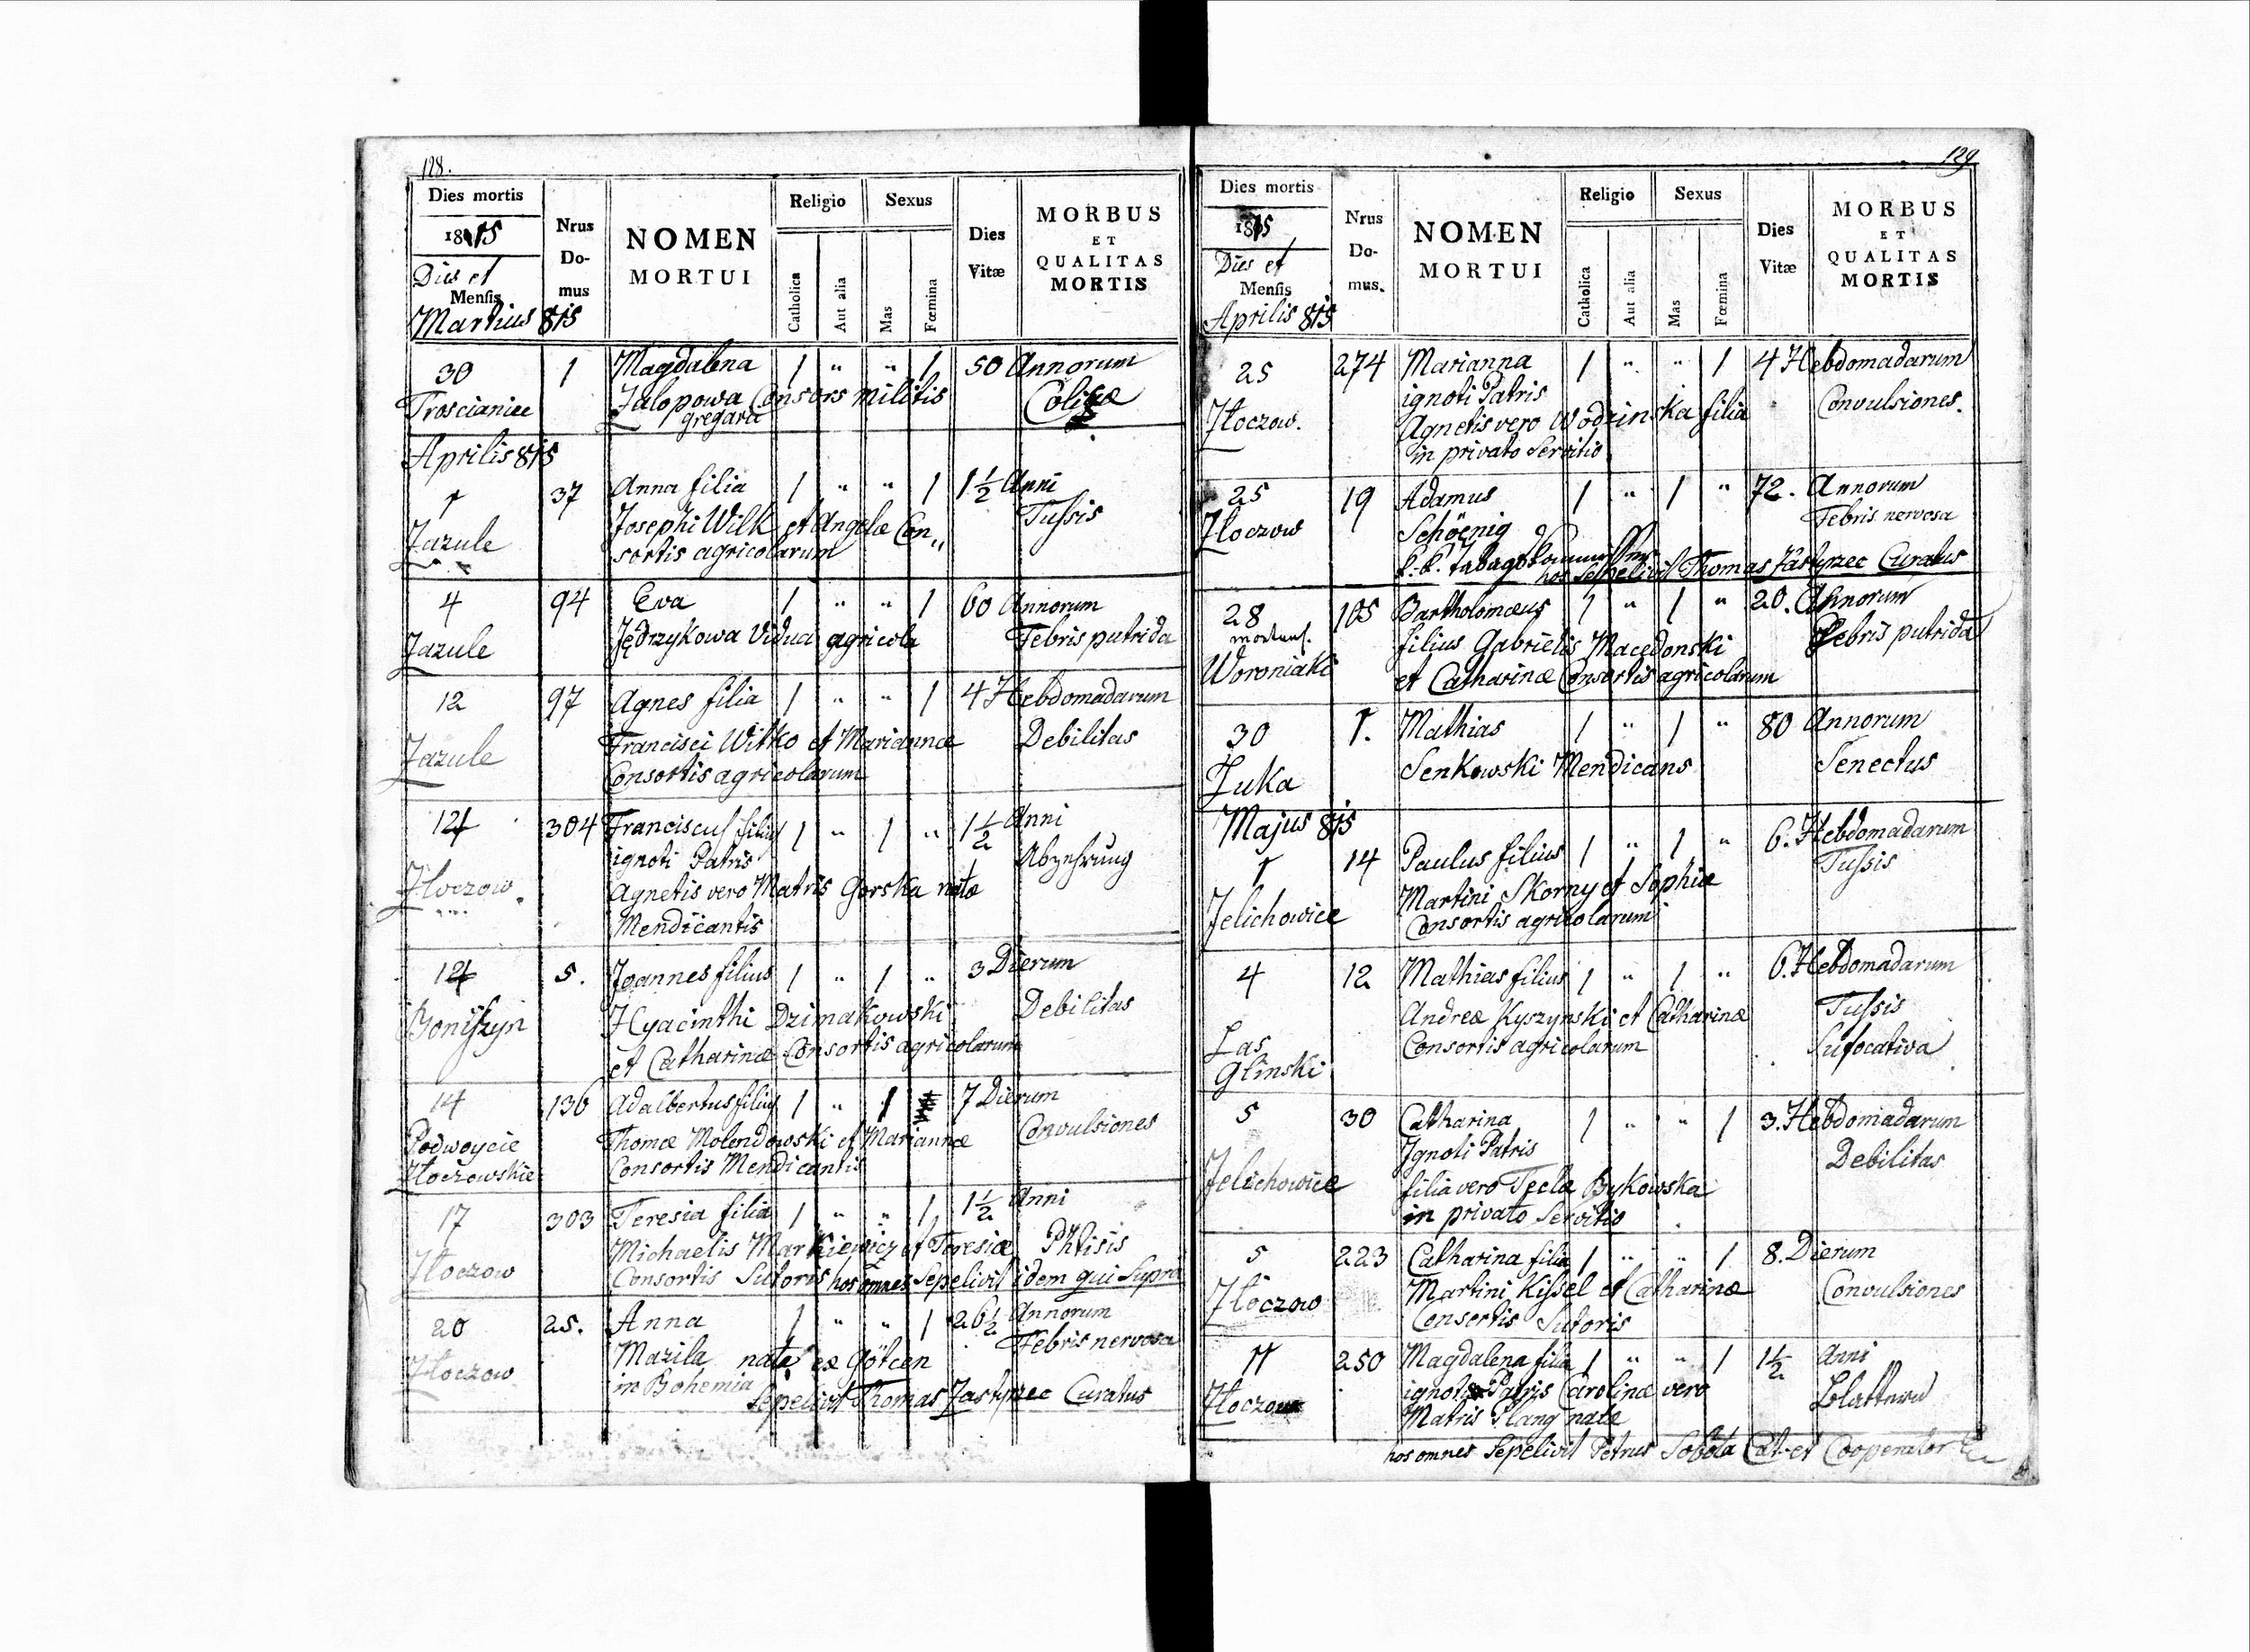 128.
Dies mortis
1815
Dies et
Mensis
Martius 815
Nrus
Do-
mus
NOMEN
MORTUI
Religio
Catholica
Aut alia
Sexus
Mas
Fœmina
Dies
Vitæ
MORBUS
ET
QUALITAS
MORTIS
30 1 Magdalena 1 " " 1 50 Annorum
Troscianiec Zalopowa Consors militis Colica
gregarii
Aprilis 815
1 37 Anna filia 1 " " 1 1½ Anni
Zazule Josephi Wilk et Angelæ Con„ Tussis
sortis agricolarum
4 94 Eva 1 " " 1 60 Annorum
Zazule Jędrzykowa Vidua agricola Febris putrida
12 97 Agnes filia 1 " " 1 4 Hebdomadarum
Zazule Francisci Witko et Mariannæ Debilitas
Consortis agricolarum
304 Franciscus filius 1 " 1 " 1½ Anni
ignoti Patris Abzehrung
Zloczow. Agnetis vero Matris Gorska natæ
Mendicantis
5. Joannes filius 1 " 1 " 3 Dierum
Boniszyn Hyacinthi Dzimakowski Debilitas
et Catharinæ Consortis agricolarum
14 136 Adalbertus filius 1 " 1 7 Dierum
Podwoycie Thomæ Molendowski et Mariannæ Convulsiones
Zloczowskie Consortis Mendicantis
17 303 Teresia filia 1 " " 1 1½ Anni
Zloczow Michaelis Markiewicz et Teresiæ Phtisis
Consortis Sutoris hos omnes Sepelivit idem qui Supra
20 25. Anna 1 " " 1 26½ Annorum
Zloczow Mazila nata ex Götcen Febris nervosa
in Bohemia
Sepelivit Thomas Jastrzec Curatus
129
Dies mortis
1815
Dies et
Mensis
Aprilis 815
Nrus
Do-
mus.
NOMEN
MORTUI
Religio
Catholica
Aut alia
Sexus
Mas
Fœmina
Dies
Vitæ
MORBUS
ET
QUALITAS
MORTIS
25 274 Marianna 1 " " 1 4 Hebdomadarum
ignoti Patris Convulsiones.
Zloczow. Agnetis vero Wodzinska filia
in privato Servitio
25 19 Adamus 1 " 1 " 72. Annorum
Zloczow Schöenig Febris nervosa
k. k.
hos Sepelivit Thomas Jastrzec Curatus
28 105 Bartholomæus 1 " 1 " 20. Annorum
filius Gabrielis Macedonski Febris putrida
Woroniaki et Catharinæ Consortis agricolarum
30 1. Mathias 1 " 1 " 80 Annorum
Luka Senkowski Mendicans Senectus
Majus 815
1 14 Paulus filius 1 " 1 " 6. Hebdomadarum
Jelichowice Martini Skorny et Sophiæ Tussis
Consortis agricolarum
4 12 Mathias filius 1 " 1 " 6. Hebdomadarum
Andreæ Kyszynski et Catharinæ Tussis
Las Consortis agricolarum Sufocativa
Glinski
5 30 Catharina 1 " " 1 3. Hebdomadarum
Ignoti Patris Debilitas
Jelichowice filia vero Teclæ Bykowska
in privato Servitio
5 223 Catharina filia 1 " " 1 8. Dierum
Zloczow Martini Kissel et Catharinæ Convulsiones
Consortis Sutoris
11 250 Magdalena filia 1 " " 1 1½ Anni
Zloczow ignoti Patris Carolinæ vero Blattern
Matris Plang natæ
hos omnes Sepelivit Petrus Sobota Cat. et Cooperator